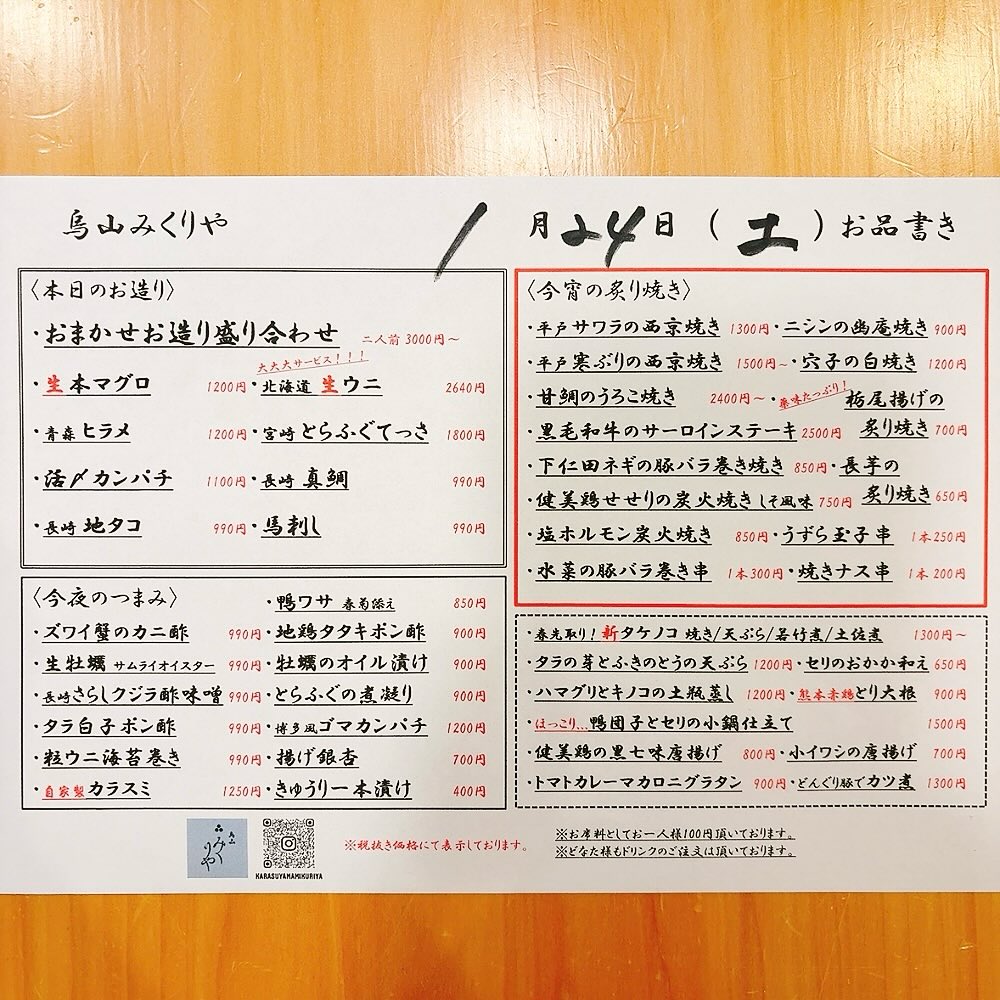 烏山みくりや
1月24日(土)お品書き
〈本日のお造り〉
・おまかせお造り盛り合わせ 二人前 3000円～
大大大サービス!!!
・生本マグロ 1200円・北海道 生ウニ 2640円
・青森 ヒラメ 1200円・宮崎 とらふぐてっさ 1800円
・活〆カンパチ 1100円・長崎 真鯛 990円
・長崎 地タコ 990円・馬刺し 990円
〈今夜のつまみ〉
・鴨ワサ 春菊添え 850円
・ズワイ蟹のカニ酢 990円・地鶏タタキポン酢 900円
・生牡蠣 サムライオイスター 990円・牡蠣のオイル漬け 900円
・長崎さらしクジラ酢味噌 990円・とらふぐの煮凝り 900円
・タラ白子ポン酢 990円・博多風ゴマカンパチ 1200円
・粒ウニ海苔巻き 990円・揚げ銀杏 700円
・自家製カラスミ 1250円・きゅうり一本漬け 400円
〈今宵の炙り焼き〉
・平戸サワラの西京焼き 1300円・ニシンの幽庵焼き 900円
・平戸寒ぶりの西京焼き 1500円~・穴子の白焼き 1200円
・甘鯛のうろこ焼き 2400円～・薬味たっぷり!栃尾揚げの
・黒毛和牛のサーロインステーキ 2500円 炙り焼き 700円
・下仁田ネギの豚バラ巻き焼き 850円・長芋の
・健美鶏せせりの炭火焼き しそ風味 750円 炙り焼き 650円
・塩ホルモン炭火焼き 850円・うずら玉子串 1本250円
・水菜の豚バラ巻き串 1本300円・焼きナス串 1本200円
・春先取り!新タケノコ 焼き/天ぷら/若竹煮/土佐煮 1300円～
・タラの芽とふきのとうの天ぷら 1200円・セリのおかか和え 650円
・ハマグリとキノコの土瓶蒸し 1200円・熊本赤鶏とり大根 900円
・ほっこり…鴨団子とセリの小鍋仕立て 1500円
・健美鶏の黒七味唐揚げ 800円・小イワシの唐揚げ 700円
・トマトカレーマカロニグラタン 900円・どんぐり豚でカツ煮 1300円
烏山
みくりや
KARASUYAMAMIKURIYA
※税抜き価格にて表示しております。
※お席料としてお一人様100円頂いております。
※どなた様もドリンクのご注文は頂いております。